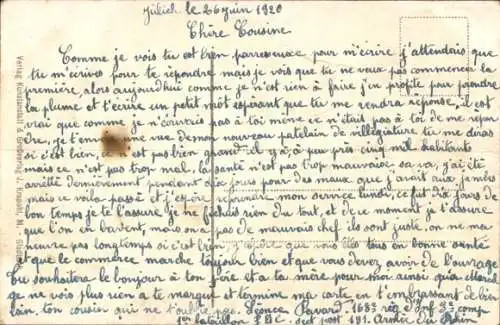 Jülich le 26 Juin 1920
Chère Cousine
Comme je vois tu est bien parresseuse pour m'écrire j'attendais que
tu m'écrives pour te répondre mais je vois que tu ne veux pas commencer la
première, alors aujourd'hui comme je n'est rien à faire j'en profite pour prendre
la plume et t'écrire un petit mot esperant que tu me rendra réponse, il est
vrai que comme je n'écrivais pas à toi même ce n'était pas à toi de me repon
dre, je t'envoie une vue de mon nouveau patelain de villégiature tu me diras
si c'est bien, ce n'est pas bien grand il y à, à peu près cinq mil habitants
mais ce n'est pas trop mal, la santé n'est pas trop mauvaise sa va, j'ai été
arrêté dernièrement pendant dix jours pour des maux que j'avait aux jambes
mais ce voila passé et j'espère reprendre mon service lundi, ce fut dix jours de
bon temps je te l'assure je ne fichais rien du tout, et de ce moment je t'assure
que l'on en bavent, mais on a pas de mauvais chef ils sont juste, on ne ma
heure pas longtemps si c'est bien j'espère que vous êtes tous en bonne santé
et que le commerce marche toujour bien et que vous devez avoir de l'ouvrage
Tu souhaitera le bonjour à ton père et a ta mère pour moi ainsi qu'a
je ne vois plus rien a te marquer et termine ma carte en t'embrassant de bien
loin, ton cousin qui ne t'oublie pas. Léonce Savard. 168è rég d'Inf 3è comp
1er bataillon sect post 191. Armée du Rhin
Verlag Kunstanstalt